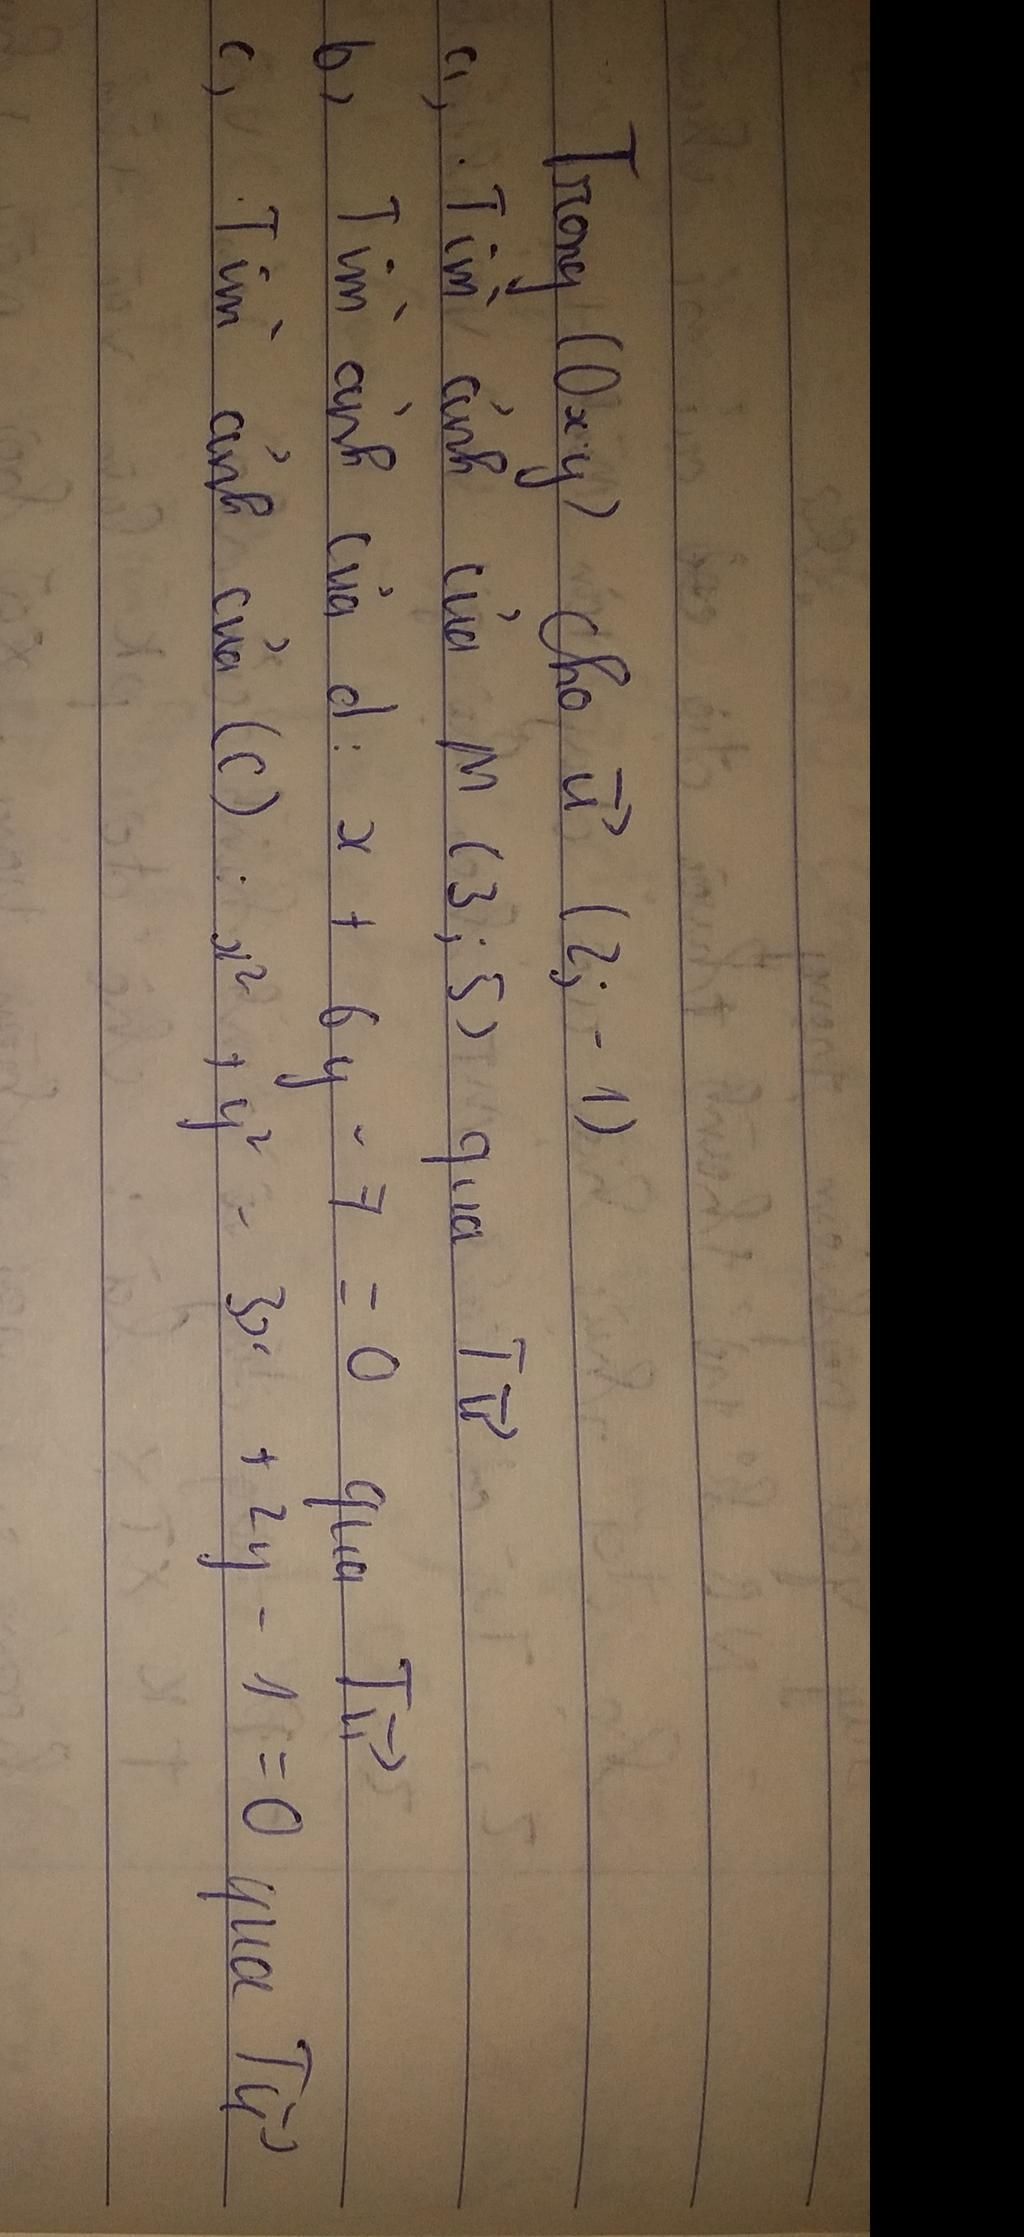 Trong (Oxy) cho u⃗ (2; -1)
a, Tìm ảnh của M (3; 5) qua Tu⃗
b, Tìm ảnh của d: x + 6y - 7 = 0 qua Tu⃗
c, Tìm ảnh của (C): x² + y² - 3x + 2y - 1 = 0 qua Tu⃗